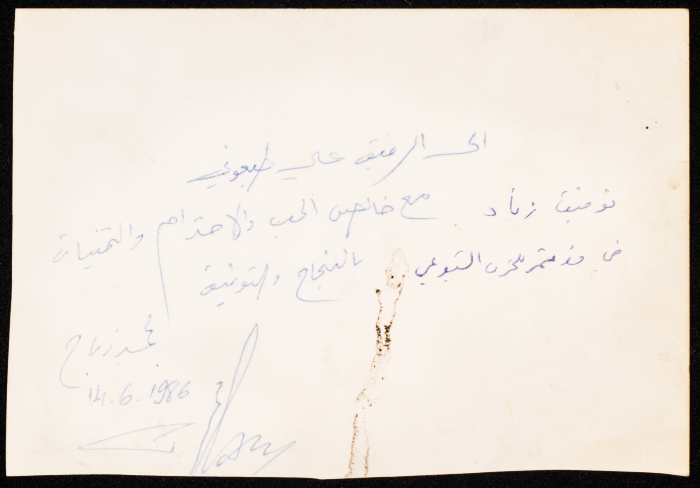 الى الرفيق علي طبعوني
مع خالص الحب والاحترام والتمنيات
بالنجاح والتوفيق
محمد
14.6.1986
توفيق زياد
في مؤتمر للحزب الشيوعي